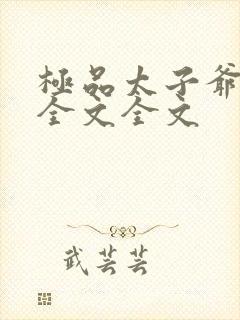 極品太子爺
全文全文
武芸芸